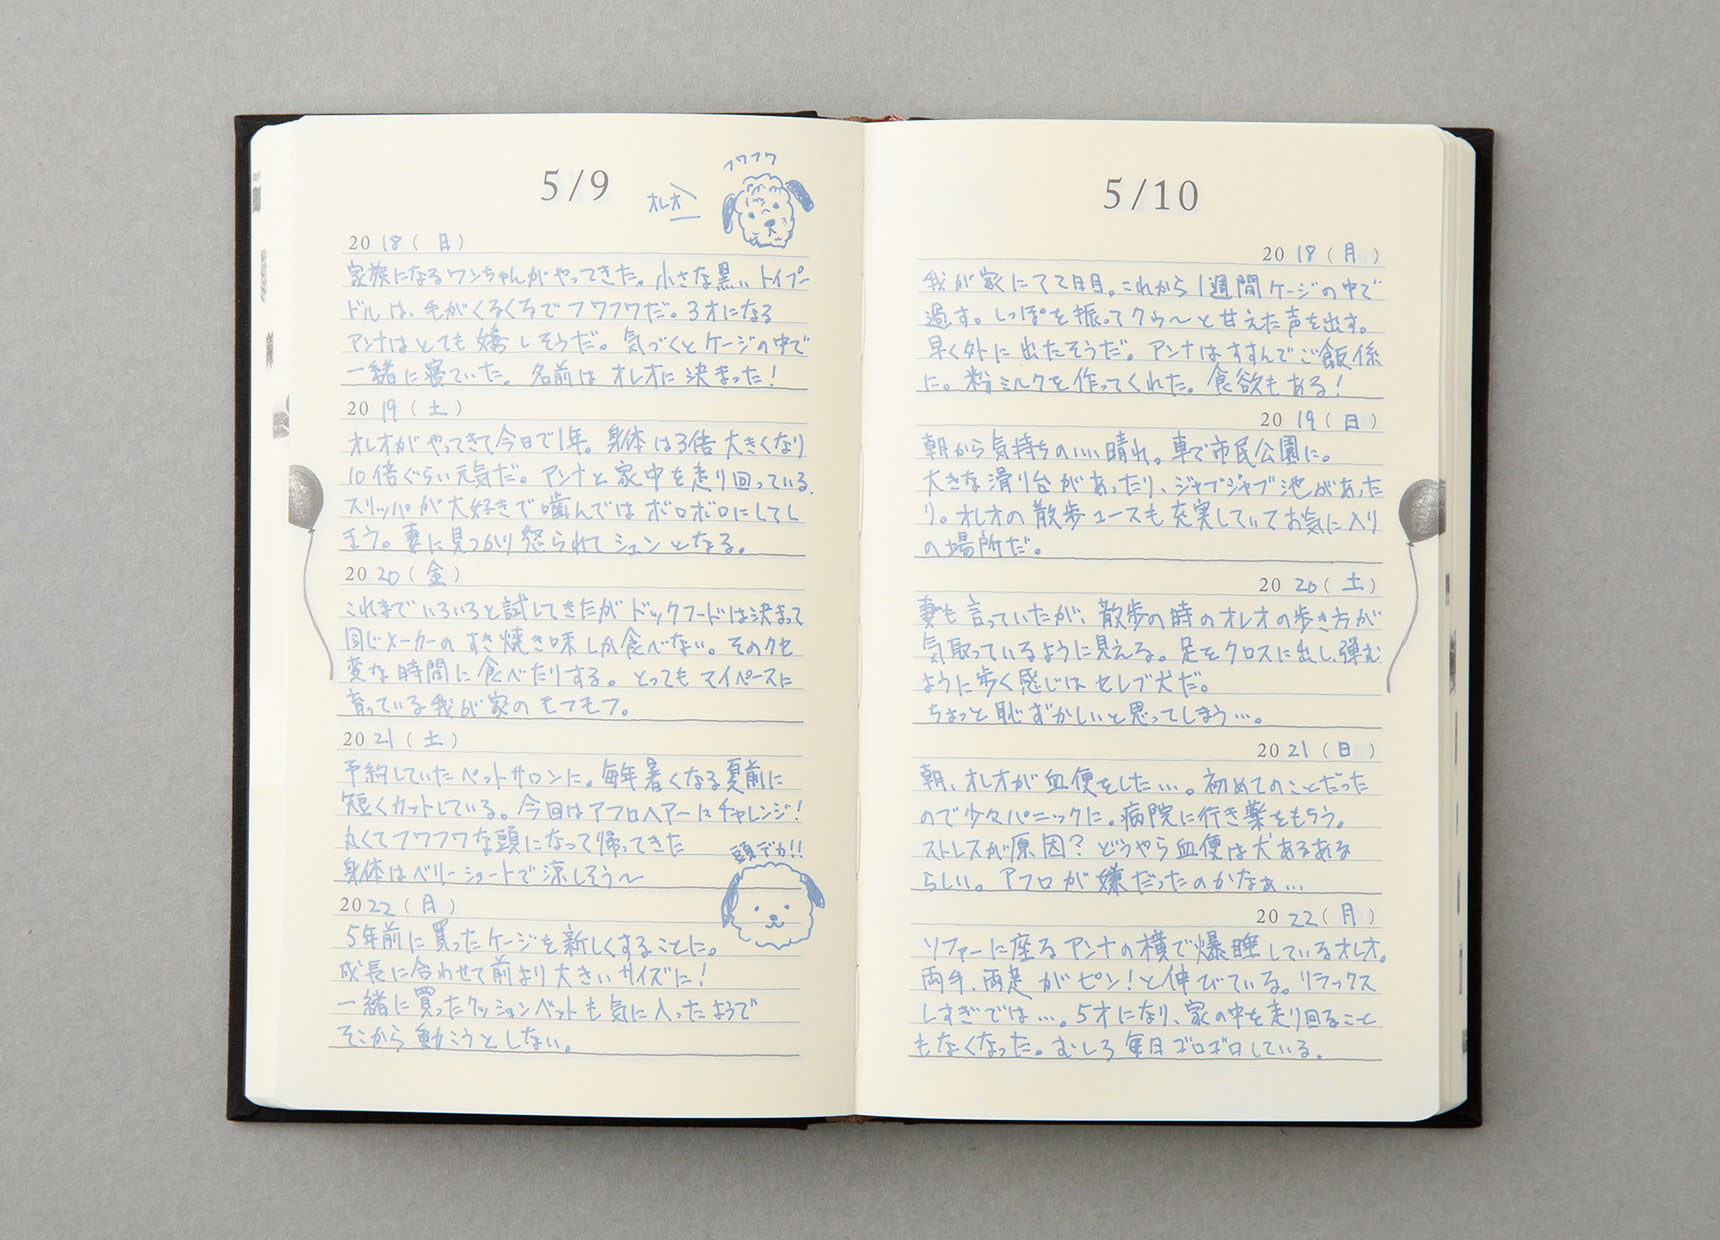 5/9
フワフワ
オレオ
2018(日)
家族になるワンちゃんがやってきた。小さな黒いトイプー
ドルは、毛がくるくるでフワフワだ。3才になる
アンナはとても嬉しそうだ。気づくとケージの中で
一緒に寝ていた。名前はオレオに決まった!
2019(土)
オレオがやってきて今日で1年。身体は3倍大きくなり
10倍ぐらい元気だ。アンナと家中を走り回っている。
スリッパが大好きで噛んではボロボロにしてし
まう。妻に見つかり怒られてシュンとなる。
2020(金)
これまでいろいろと試してきたがドックフードは決まって
同じメーカーのすき焼き味しか食べない。そのクセ
変な時間に食べたりする。とってもマイペースに
育っている我が家のモフモフ。
2021(土)
予約していたペットサロンに。毎年暑くなる夏前に
短くカットしている。今回はアフロヘアーにチャレンジ!
丸くてフワフワな頭になって帰ってきた
身体はベリーショートで涼しそう〜
頭デカ!!
2022(月)
5年前に買ったケージを新しくすることに。
成長に合わせて前より大きいサイズに!
一緒に買ったクッションベットも気に入ったようで
そこから動こうとしない。
5/10
2018(月)
我が家にて2日目。これから1週間ケージの中で
過す。しっぽを振ってクゥ〜と甘えた声を出す。
早く外に出たそうだ。アンナはすすんでご飯係
に。粉ミルクを作ってくれた。食欲もある!
2019(日)
朝から気持ちのいい晴れ。車で市民公園に。
大きな滑り台があったり、ジャブジャブ池があった
り。オレオの散歩コースも充実していてお気に入り
の場所だ。
2020(土)
妻も言っていたが、散歩の時のオレオの歩き方が
気取っているように見える。足をクロスに出し、弾む
ように歩く感じはセレブ犬だ。
ちょっと恥ずかしいと思ってしまう…。
2021(日)
朝、オレオが血便をした…。初めてのことだった
ので少々パニックに。病院に行き薬をもらう。
ストレスが原因?どうやら血便は犬あるある
らしい。アフロが嫌だったのかなぁ…
2022(月)
ソファーに座るアンナの横で爆睡しているオレオ。
両手、両足がピン!と伸びている。リラックス
しすぎでは…。5才になり、家の中を走り回ること
もなくなった。むしろ毎日ゴロゴロしている。